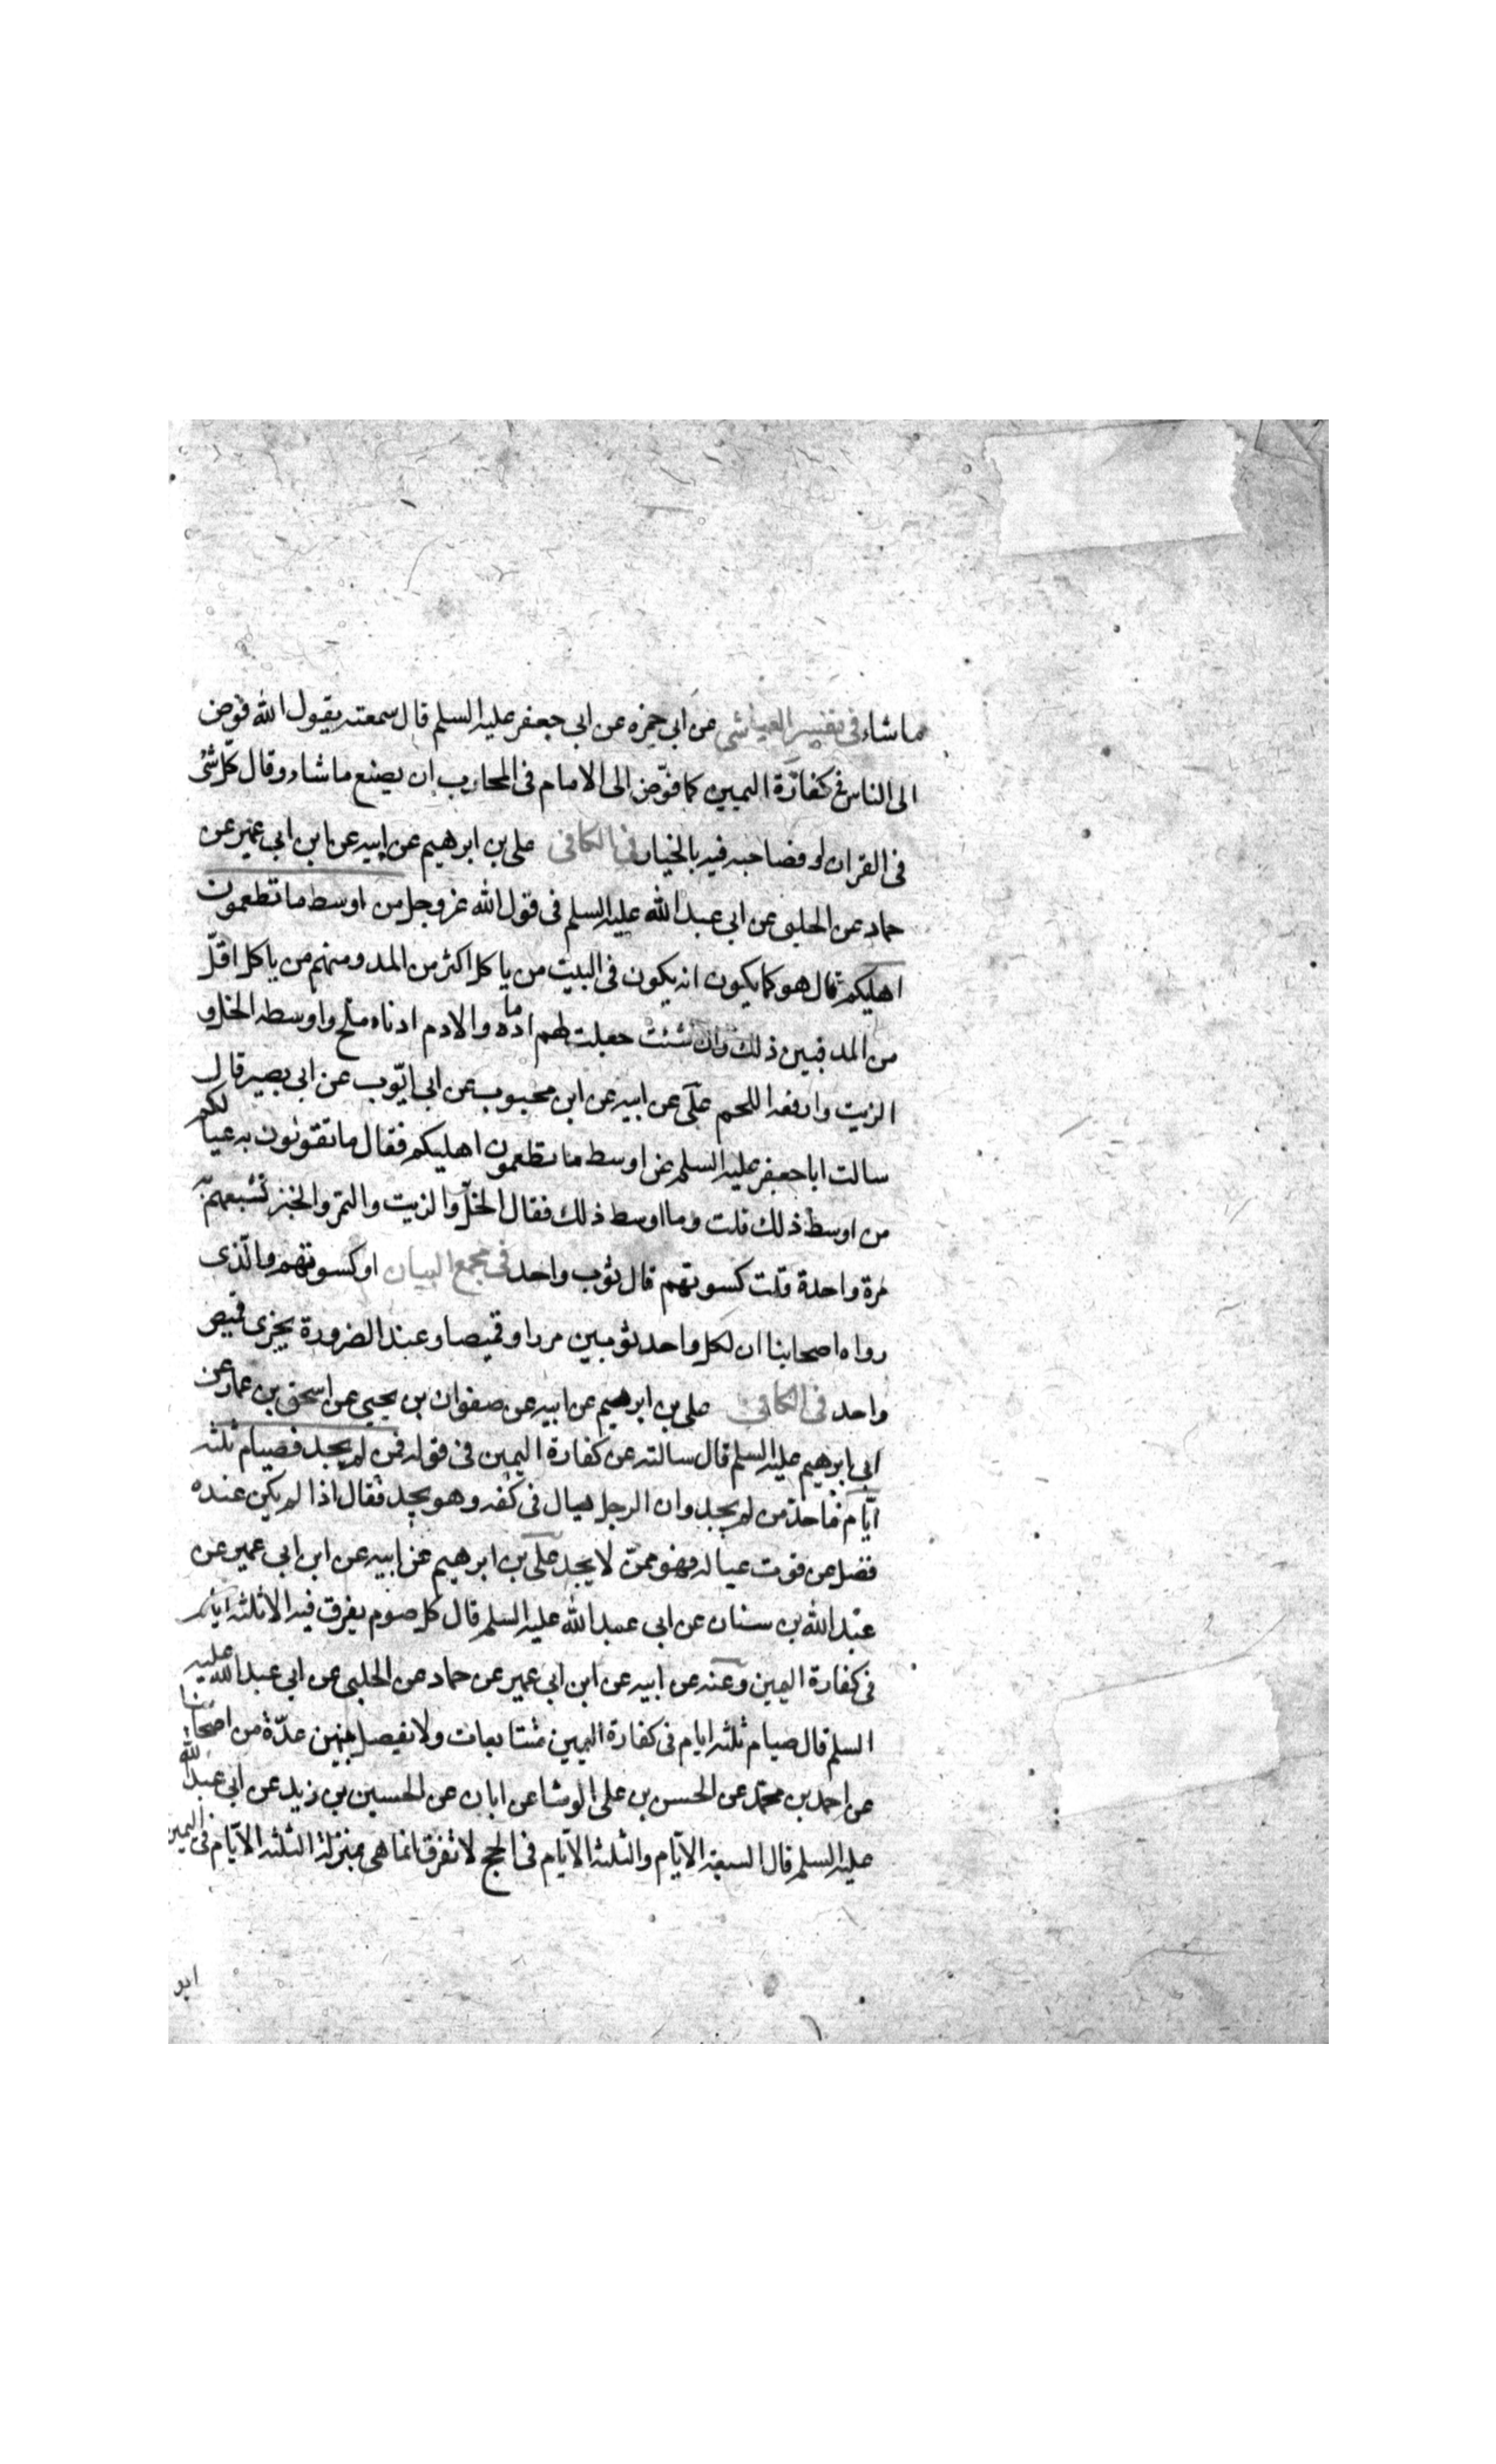 ما شاء فى تفسير العياشى عن ابى حمزه عن ابى جعفر عليه السلم قال سمعته يقول الله فوّض
الى الناس فى كفارة اليمين كما فوّض الى الامام فى المحارب ان يصنع ما شاء وقال كلّ شئ
فى القران او فصاحبه فيه بالخيار فى الكافى على بن ابرهيم عن ابيه عن ابن ابى عمير عن
حماد عن الحلبى عن ابى عبد الله عليه السلم فى قول الله عز وجل من اوسط ما تطعمون
اهليكم قال هو كما يكون انه يكون فى البيت من ياكل اكثر من المد ومنهم من ياكل اقلّ
من المد فبين ذلك وان شئت جعلت لهم ادما والادم ادناه ملح واوسطه الخل و
الزيت وارفعه اللحم علىّ عن ابيه عن ابن محبوب عن ابى ايّوب عن ابى بصير قال
سالت ابا جعفر عليه السلم عن اوسط ما تطعمون اهليكم فقال ما تقوتون به عيالكم
من اوسط ذلك قلت وما اوسط ذلك فقال الخلّ والزيت والتمر والخبز تشبعهم به
مرة واحدة قلت كسوتهم قال ثوب واحد فى مجمع البيان او كسوتهم والّذى
رواه اصحابنا ان لكل واحد ثوبين مزرا وقميصا وعند الضرورة يجزى قميص
واحد فى الكافى على بن ابرهيم عن ابيه عن صفوان بن يحيى عن اسحق بن عمار عن
ابى ابرهيم عليه السلم قال سالته عن كفارة اليمين فى قوله فمن لم يجد فصيام ثلثه
ايّام فما حد من لم يجد وان الرجل يسال فى كفه وهو يجد فقال اذا لم يكن عنده
فضل عن قوت عياله فهو ممّن لا يجد على بن ابرهيم عن ابيه عن ابن ابى عمير عن
عبد الله بن سنان عن ابى عبد الله عليه السلم قال كل صوم يفرق فيه الا ثلثه ايام
فى كفارة اليمين وعنه عن ابيه عن ابن ابى عمير عن حماد عن الحلبى عن ابى عبد الله عليه
السلم قال صيام ثلثه ايام فى كفارة اليمين متتابعات ولا يفصل بينهن عدّة من اصحابنا
عن احمد بن محمّد عن الحسن بن على الوشا عن ابان عن الحسين بن زيد عن ابى عبد الله
عليه السلم قال السبعة الايّام والثلثه الايّام فى الحج لا تفرق انما هى بمنزلة الثلثه الايّام فى اليمين